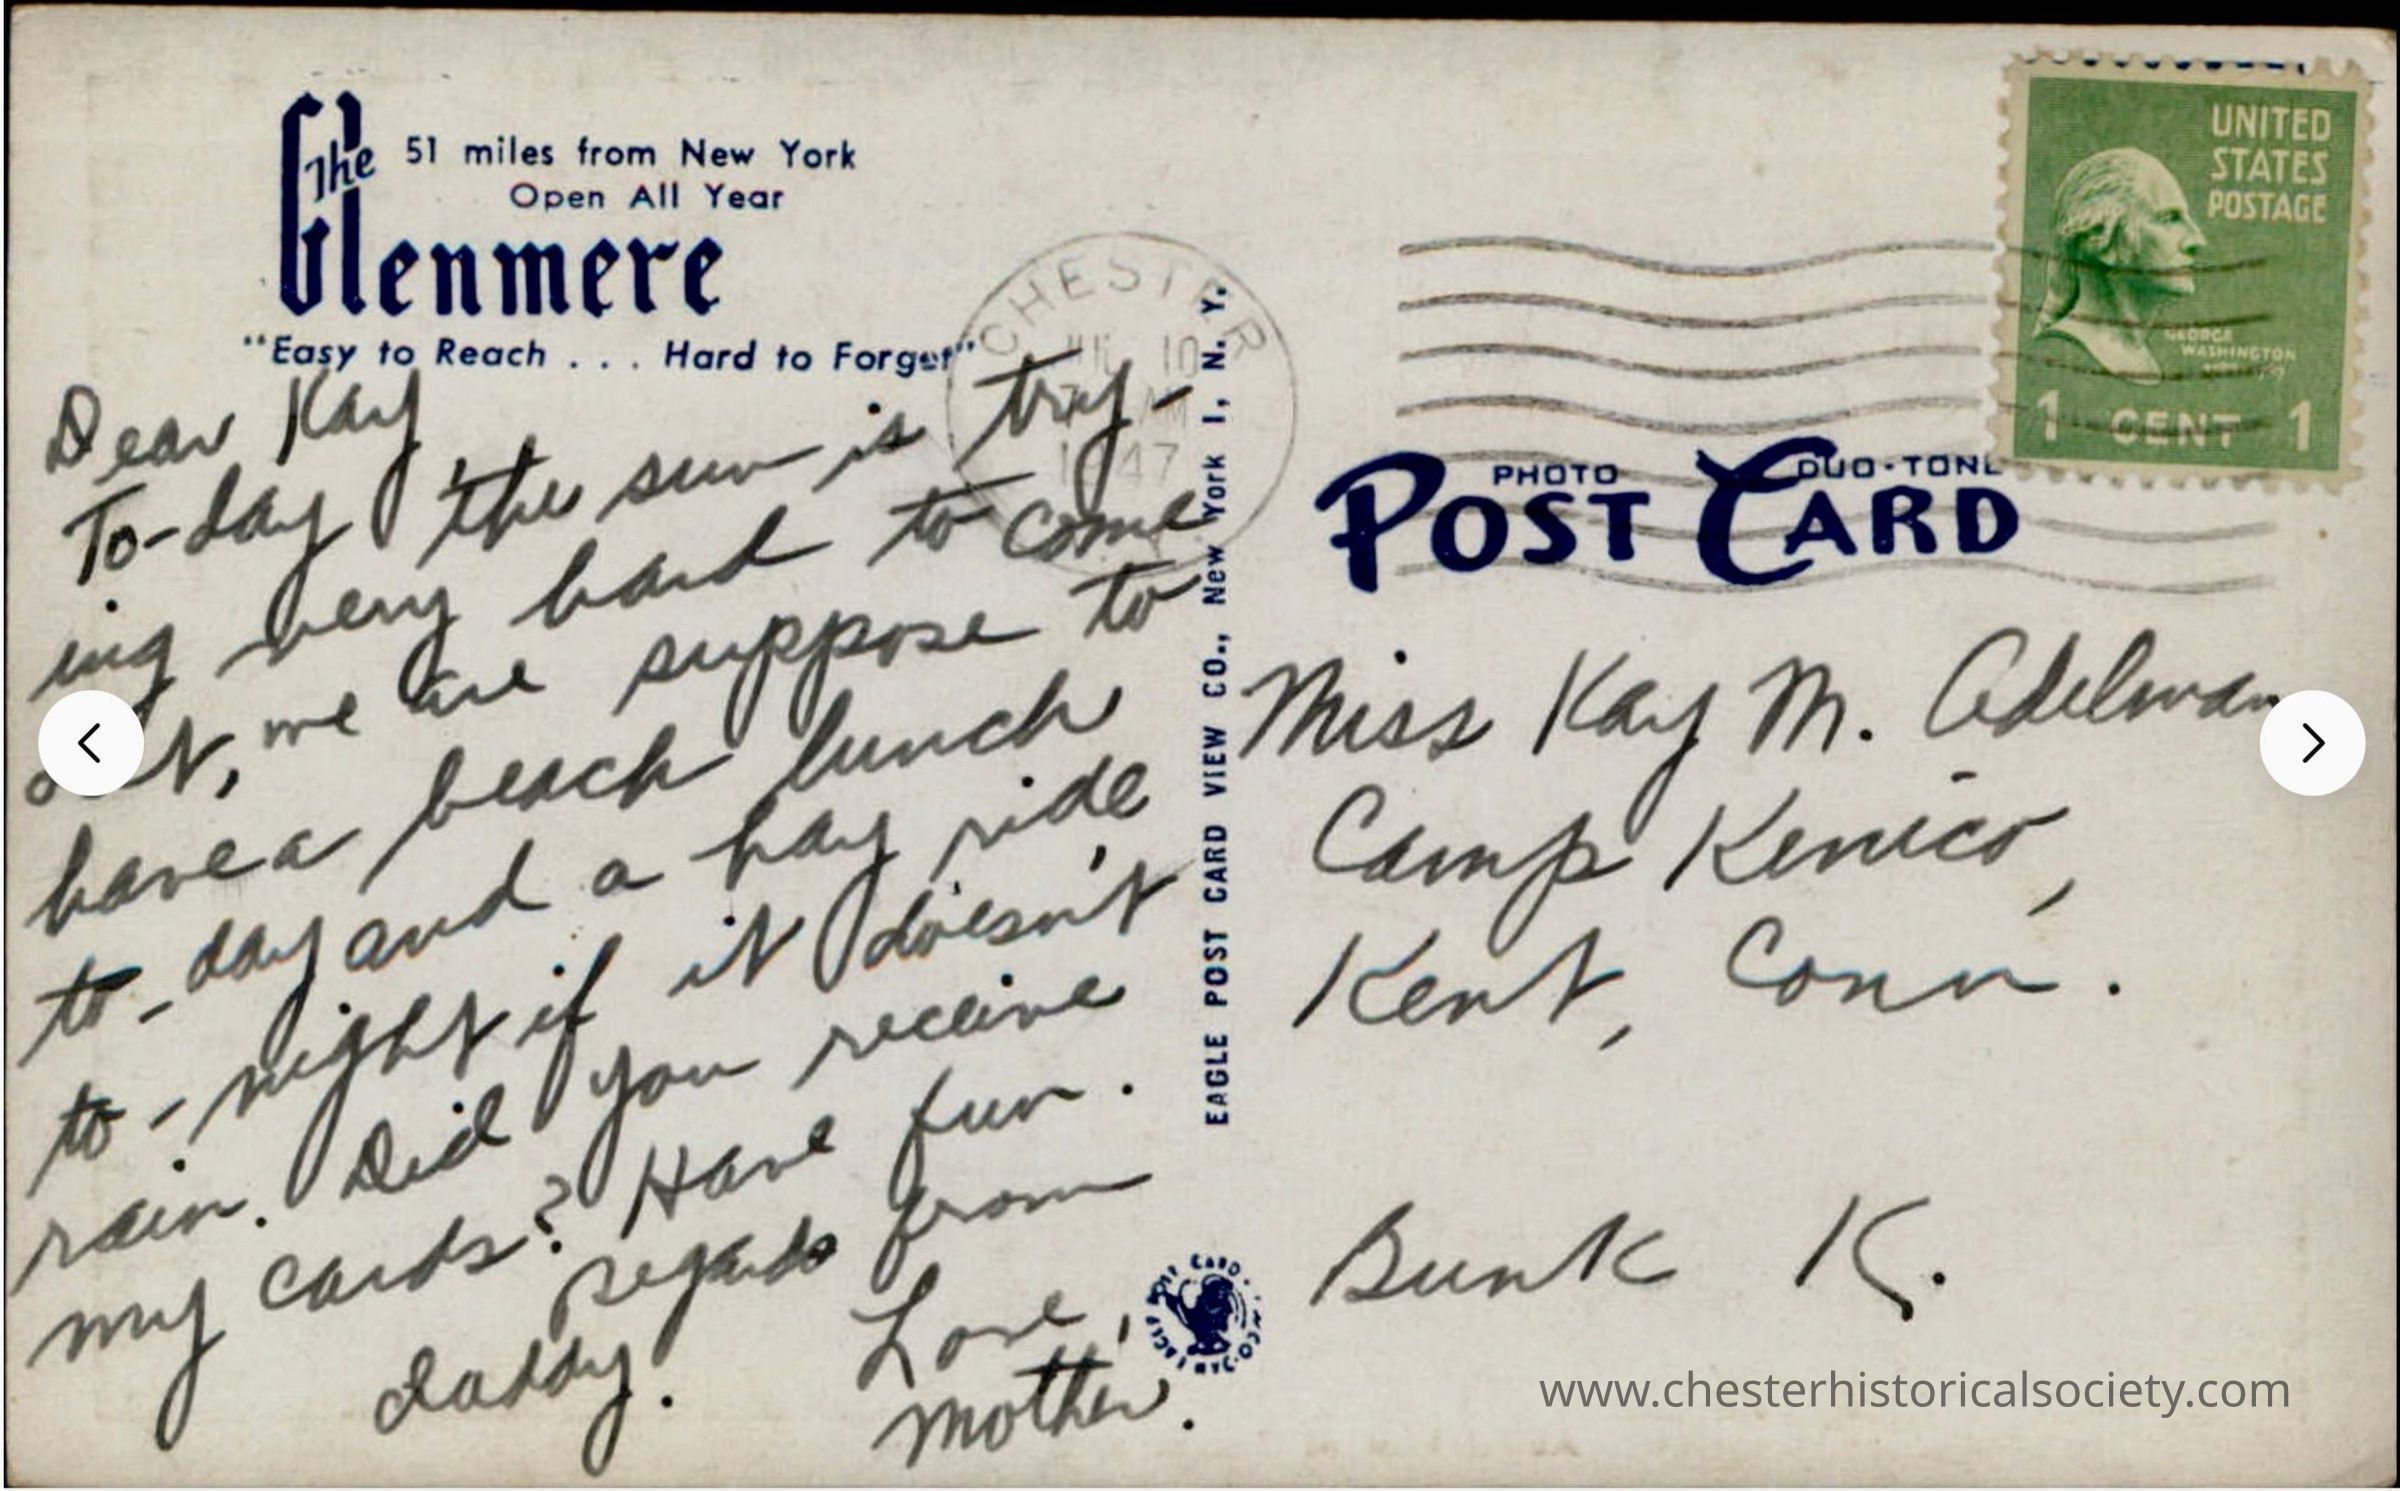 The
51 miles from New York
Open All Year
Glenmere
"Easy to Reach . . . Hard to Forget"
Dear Kay
To-day the sun is try-
ing very hard to come
out, we are suppose to
have a beach lunch
to-day and a hay ride
to-night if it doesn't
rain. Did you receive
my cards? Have fun.
Regards from
daddy.
Love,
Mother.
CHESTER
10
47
EAGLE POST CARD VIEW CO., New York 1, N. Y.
UNITED
STATES
POSTAGE
GEORGE
WASHINGTON
1 CENT 1
PHOTO DUO-TONE
POST CARD
Miss Kay M. Adelman
Camp Kenico,
Kent, Conn.
Bunk K.
www.chesterhistoricalsociety.com